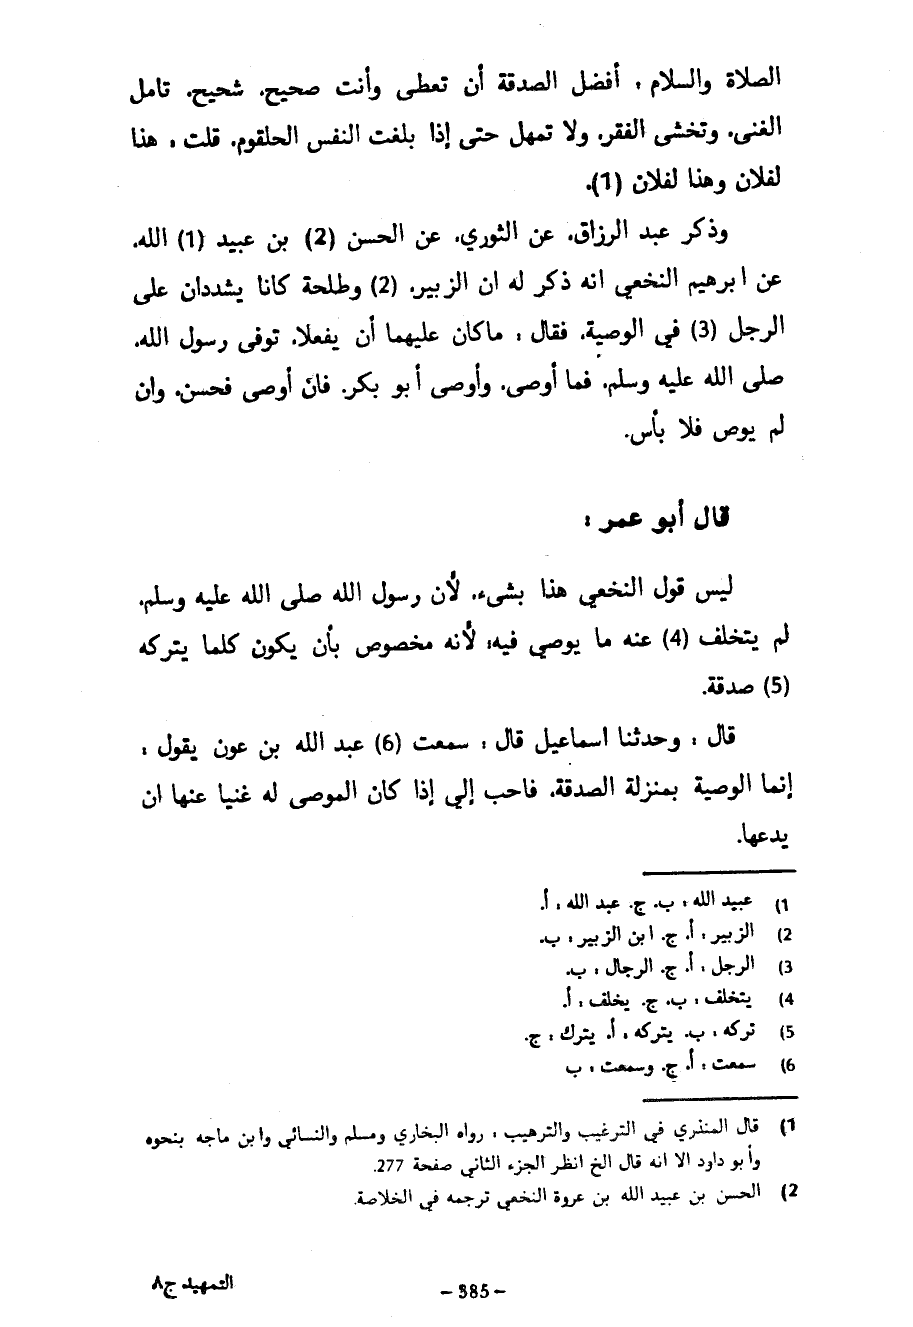 الصلاة والسلام : أفضل الصدقة أن تعطى وأنت صحيح، شحيح، تامل
الغنى، وتخشى الفقر، ولا تمهل حتى إذا بلغت النفس الحلقوم، قلت : هذا
لفلان وهذا لفلان (1).
وذكر عبد الرزاق، عن الثوري، عن الحسن (2) بن عبيد (1) الله،
عن ابرهيم النخعي انه ذكر له ان الزبير، (2) وطلحة كانا يشددان على
الرجل (3) في الوصية، فقال : ماكان عليهما أن يفعلا، توفى رسول الله،
صلى الله عليه وسلم، فما أوصى، وأوصى أبو بكر، فان أوصى فحسن، وان
لم يوص فلا بأس.
قال أبو عمر :
ليس قول النخعي هذا بشيء، لأن رسول الله صلى الله عليه وسلم،
لم يتخلف (4) عنه ما يوصي فيه؛ لأنه مخصوص بأن يكون كلما يتركه
(5) صدقة.
قال : وحدثنا اسماعيل قال : سمعت (6) عبد الله بن عون يقول :
إنما الوصية بمنزلة الصدقة، فاحب إلي إذا كان الموصى له غنيا عنها ان
يدعها.
1) عبيد الله : ب، ج. عبد الله : أ.
2) الزبير : أ، ج. ابن الزبير : ب.
3) الرجل : أ، ج. الرجال : ب.
4) يتخلف : ب، ج. يخلف : أ.
5) تركه : ب. يتركه : أ. يترك : ج.
6) سمعت : أ، ج. وسمعت : ب
1) قال المنذري في الترغيب والترهيب : رواه البخاري ومسلم والنسائي وابن ماجه بنحوه
وأبو داود الا انه قال الخ انظر الجزء الثاني صفحة 277.
2) الحسن بن عبيد الله بن عروة النخعي ترجمه في الخلاصة.
التمهيد ج٨
- 385 -